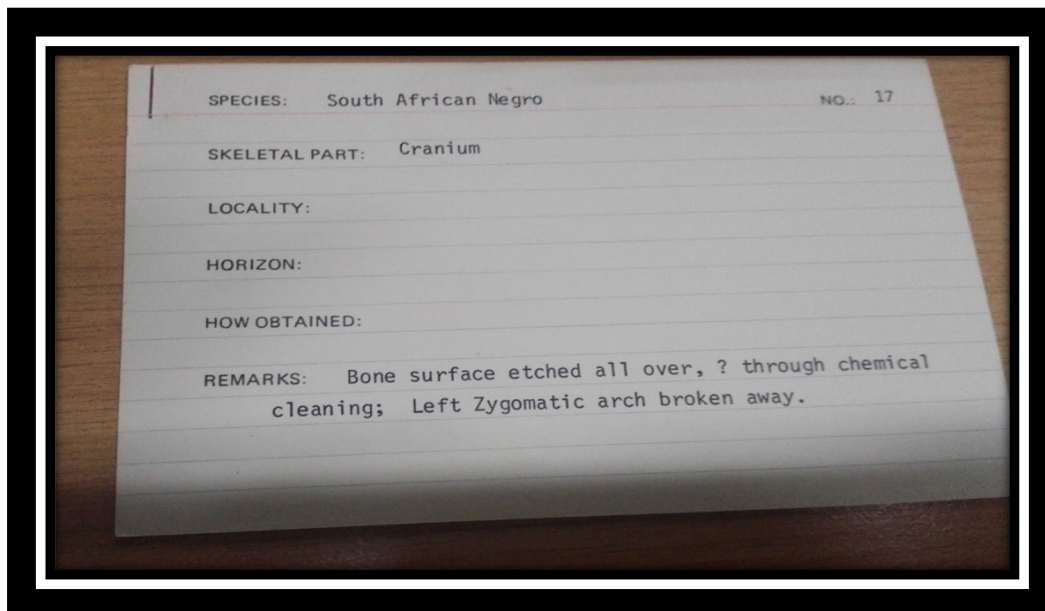 SPECIES: South African Negro NO.: 17
SKELETAL PART: Cranium
LOCALITY:
HORIZON:
HOW OBTAINED:
REMARKS: Bone surface etched all over, ? through chemical
cleaning; Left Zygomatic arch broken away.